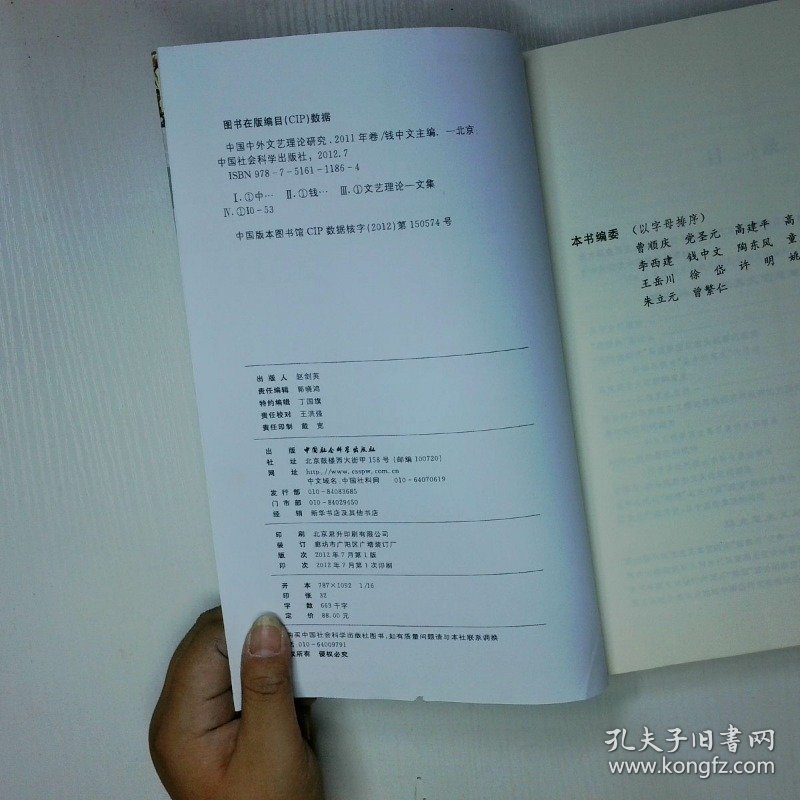 图书在版编目(CIP)数据
中国中外文艺理论研究.2011年卷/钱中文主编.—北京:
中国社会科学出版社,2012.7
ISBN 978-7-5161-1186-4
Ⅰ.①中… Ⅱ.①钱… Ⅲ.①文艺理论—文集
Ⅳ.①I0-53
中国版本图书馆CIP数据核字(2012)第150574号
出版人 赵剑英
责任编辑 郭晓鸿
特约编辑 丁国旗
责任校对 王洪强
责任印制 戴宽
出版 中国社会科学出版社
社址 北京鼓楼西大街甲158号(邮编100720)
网址 http://www.csspw.com.cn
中文域名:中国社科网 010-64070619
发行部 010-84083685
门市部 010-84029450
经销 新华书店及其他书店
印刷 北京君升印刷有限公司
装订 廊坊市广阳区广增装订厂
版次 2012年7月第1版
印次 2012年7月第1次印刷
开本 787×1092 1/16
印张 32
字数 663千字
定价 88.00元
购买中国社会科学出版社图书,如有质量问题请与本社联系调换
010-64009791
权所有 侵权必究
本书编委 (以字母排序)
曹顺庆 党圣元 高建平 高
李西建 钱中文 陶东风 童
王岳川 徐岱 许明 姚
朱立元 曾繁仁
孔夫子旧书网
www.kongfz.com